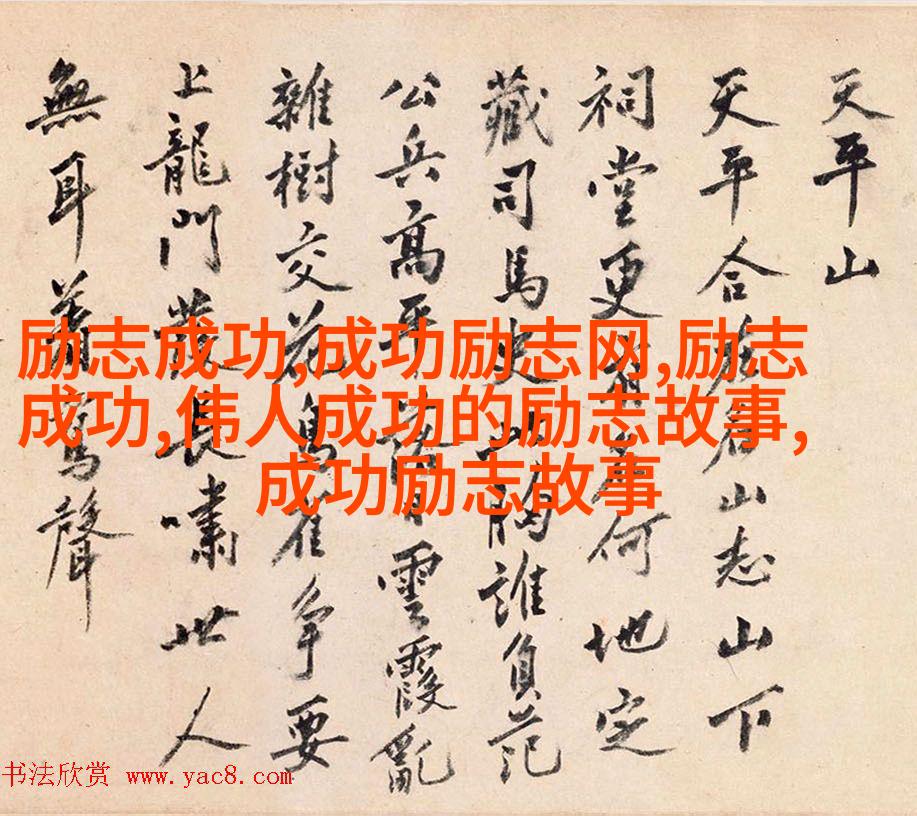 天平山
天平合 山志山下
祠堂更 何地定
藏司馬史 誰負范
公兵高平 雲霞亂
雜樹交花鳥雀爭要
上龍門發長嘯世人
無耳 聲
励志成功,成功励志网,励志
成功,伟人成功的励志故事,
成功励志故事
书法欣赏 www.yac8.com